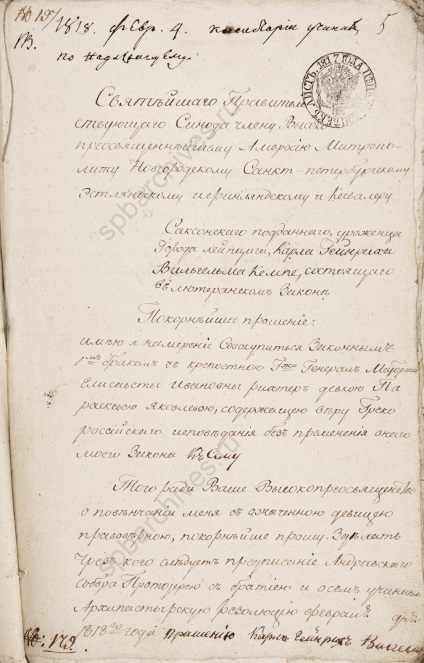 № 157
1818. Февр. 4. Консисторіи учинить,
5
по надлежащему.
ЛИСТЪ. 1817 ГОДА
Святѣйшаго Правитель
ствующаго Синода члену Высоко
преосвященнѣйшему Амвросію Митропо
литу Новгородскому Санкт-петербургскому
Эстляндскому и Финляндскому и Кавалеру
Саксонскаго подданнаго, уроженца
города Лейпцига, Карла Гейнриха
Вильгельма Кемпе, состоящаго
въ лютеранскомъ Законѣ
Покорнѣйшее прошеніе:
имѣю я намереніе Совокупиться Законнымъ
1мъ бракомъ съ крепостною Гжи Генералъ Маіорши
Елисаветы Ивановны Рихтеръ девкою Па
раскевою Яковлевою, содержащею вѣру Греко
россійскаго исповѣданія безъ премененія онаго
моего Закона къ сему
Того ради Ваше Высокопреосвященство
о повѣнчаніи меня съ означенною девицею
правовѣрною, покорнѣйше прошу Зделать
чрезъ кого слѣдуетъ предписаніе Андреевскаго
Собора Протоіерею съ братіею и о семъ учинить
Архипастырскую резолюцію февраля дня
1818го года Прошенію Карлъ Гейнрихъ
№: 179.
spbarchives.ru
spbarchives.ru